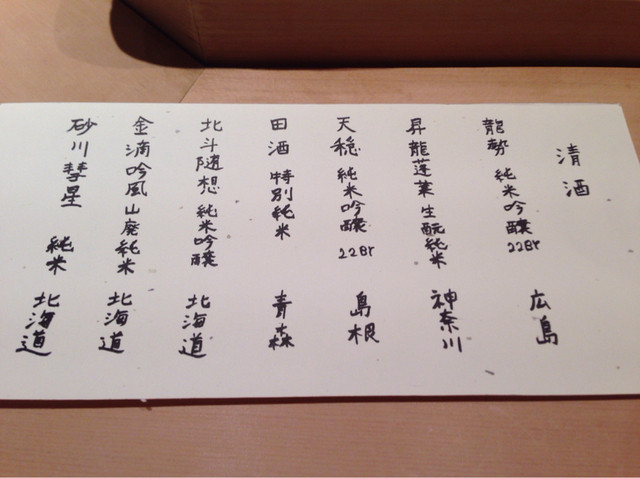 清酒
龍勢 純米吟醸 22BY 広島
昇龍蓬莱 生酛純米 神奈川
天穏 純米吟醸 22BY 島根
田酒 特別純米 青森
北斗随想 純米吟醸 北海道
金滴吟風 山廃純米 北海道
砂川彗星 純米 北海道